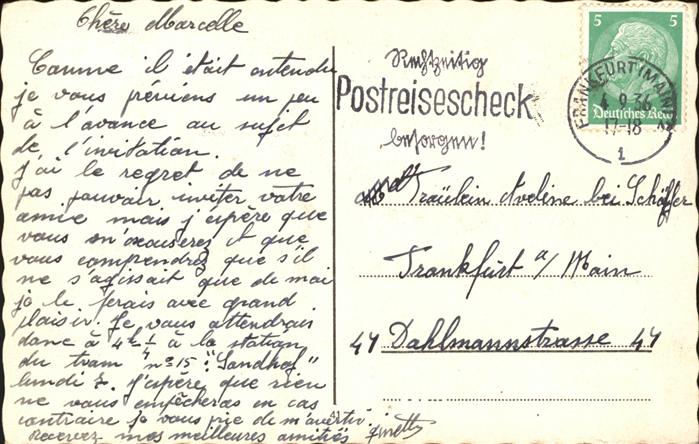 Chère Marcelle
Comme il était entendu
je vous préviens un peu
à l'avance au sujet
de l'invitation.
J'ai le regret de ne
pas pouvoir inviter votre
amie mais j'espère que
vous m'excuserez et que
vous comprendrez que s'il
ne s'agissait que de moi
je le ferais avec grand
plaisir. Je vous attendrais
donc à 4h ½ à la station
du tram nº 15: "Sandhof"
lundi 7. J'espère que rien
ne vous empêcheras en cas
contraire je vous prie de m'avertir
Recevez mes meilleures amitiés Ginette
Rechtzeitig
Postreisescheck
besorgen!
5 5
FRANKFURT (MAIN)
4.9.36
17-18
1
Deutsches Reich
Fräulein bei Schäffer
Frankfurt a/ Main
47 Dahlmannstrasse 47